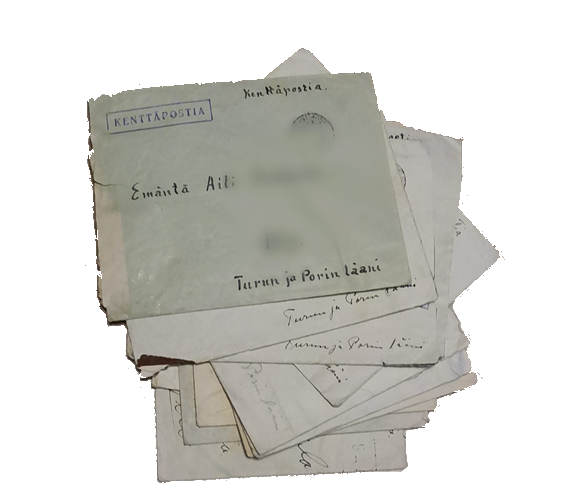 Kenttäpostia.
KENTTÄPOSTIA
Emäntä Aili
Turun ja Porin lääni
Turun ja Porin lääni
Turun ja Porin lääni
Porin lääni